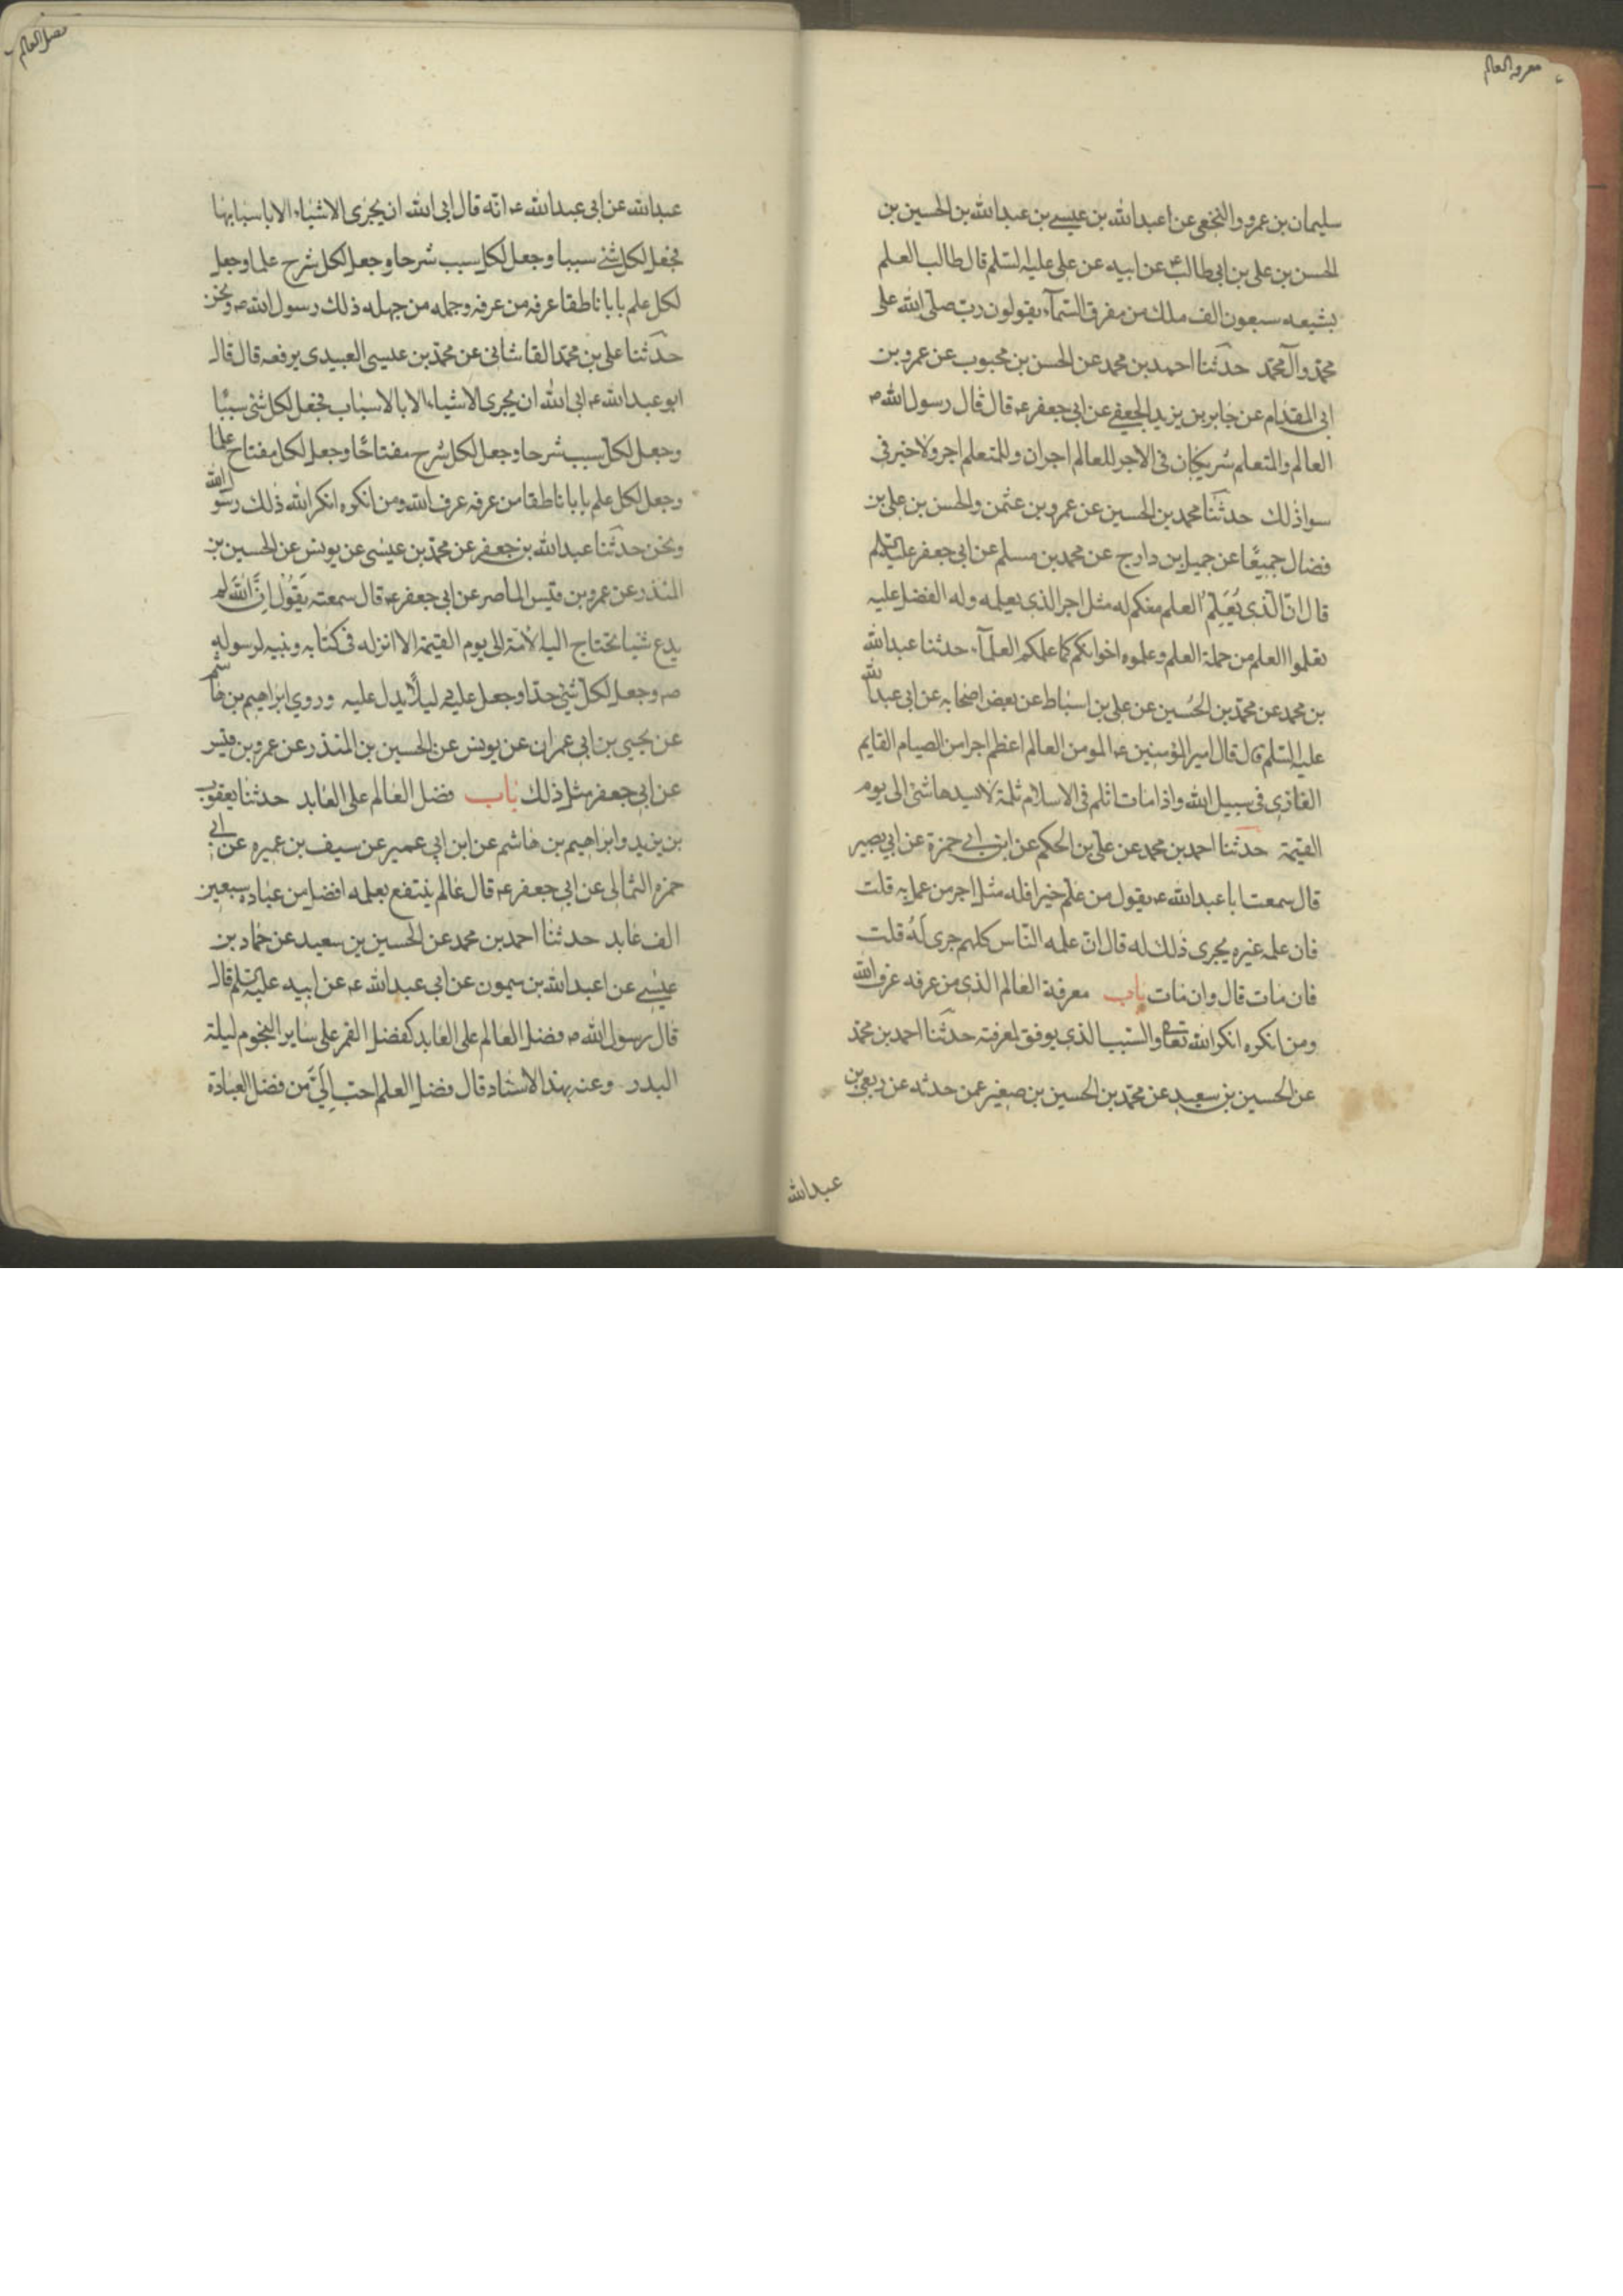 معرفة العالم
سليمان بن عمرو النخعى عن اعبدالله بن عيسى بن عبدالله بن الحسين بن
الحسن بن على بن ابى طالب ع عن ابيه عن على عليه السلم قال طالب العلم
يشيعه سبعون الف ملك من مفرق السمآء يقولون رب صلى الله على
محمد وآل محمد حدثنا احمد بن محمد عن الحسن بن محبوب عن عمرو بن
ابى المقدام عن جابر بن يزيد الجعفى عن ابى جعفر ع قال قال رسول الله ص
العالم والمتعلم شريكان فى الاجر للعالم اجران وللمتعلم اجر ولا خير فى
سوا ذلك حدثنا محمد بن الحسين عن عمرو بن عثمن والحسن بن على بن
فضال جميعًا عن جميل بن دارج عن محمد بن مسلم عن ابى جعفر عليه السلم
قال ان الذى يُعَلِّمُ العلم منكم له مثل اجر الذى يعلمه وله الفضل عليه
تعلموا العلم من حملة العلم وعلموه اخوانكم كما علمكم العلمآء حدثنا عبدالله
بن محمد عن محمد بن الحُسين عن على بن اسباط عن بعض اصحابه عن ابى عبدالله
عليه السلم قال قال امير المؤمنين ع المومن العالم اعظم اجرا من الصيام القايم
الغازى فى سبيل الله واذا مات ثلم فى الاسلام ثلمة لا يسدها شئ الى يوم
القيمة حدثنا احمد بن محمد عن على بن الحكم عن ابن ابى حمزة عن ابى بصير
قال سمعت ابا عبدالله ع يقول من علم خيرا فله مثل اجر من عمل به قلت
فان علمه غيره يجرى ذلك له قال ان علمه الناس كلهم جرى لَهُ قلت
فان مات قال وان مات باب معرفة العالم الذى من عرفه عرف الله
ومن انكره انكر الله تعا والسبب الذى يوفق لمعرفته حدثنا احمد بن محمد
عن الحسين بن سعيد عن محمد بن الحسين بن صغير عمن حدثه عن ربعى بن
عبدالله
فضل العالم
عبدالله عن ابى عبدالله ع انه قال ابى الله ان يجرى الاشياء الا باسبابها
فجعل لكل شئ سببا وجعل لكل سبب شرحا وجعل لكل شرح علما وجعل
لكل علم بابا ناطقا عرفه من عرفه وجهله من جهله ذلك رسول الله ص ونحن
حدثنا على بن محمد القاشانى عن محمد بن عيسى العبيدى يرفعه قال قال
ابو عبدالله ع ابى الله ان يجرى الاشياء الا بالاسباب فجعل لكل شئ سببًا
وجعل لكل سبب شرحا وجعل لكل شرح مفتاحًا وجعل لكل مفتاح علما
وجعل لكل علم بابا ناطقا من عرفه عرف الله ومن انكره انكر الله ذلك رسول الله
ونحن حدثنا عبدالله بن جعفر عن محمد بن عيسى عن يونس عن الحسين بن
المنذر عن عمرو بن قيس الماصر عن ابى جعفر ع قال سمعته يَقُولُ اِنَّ اللهَ لم
يدع شيئا تحتاج اليه الامة الى يوم القيمة الا انزله فى كتابه وبينه لرسوله
ص وجعل لكل شئ حدا وجعل عليه دليلًا يدل عليه وروى ابراهيم بن هاشم
عن يحيى بن ابى عمران عن يونس عن الحسين بن المنذر عن عمرو بن قيس
عن ابى جعفر مثل ذلك باب فضل العالم على العابد حدثنا يعقوب
بن يزيد وابراهيم بن هاشم عن ابن ابى عمير عن سيف بن عميره عن ابى
حمزه الثمالى عن ابى جعفر ع قال عالم ينتفع بعلمه افضل من عباده سبعين
الف عابد حدثنا احمد بن محمد عن الحسين بن سعيد عن حماد بن
عيسى عن اعبدالله بن ميمون عن ابى عبدالله ع عن ابيه عليه السلم قال
قال رسول الله ص فضل العالم على العابد كفضل القمر على ساير النجوم ليلة
البدر وعنه بهذا الاسناد قال فضل العلم احب اِلَىَّ من فضل العبادة